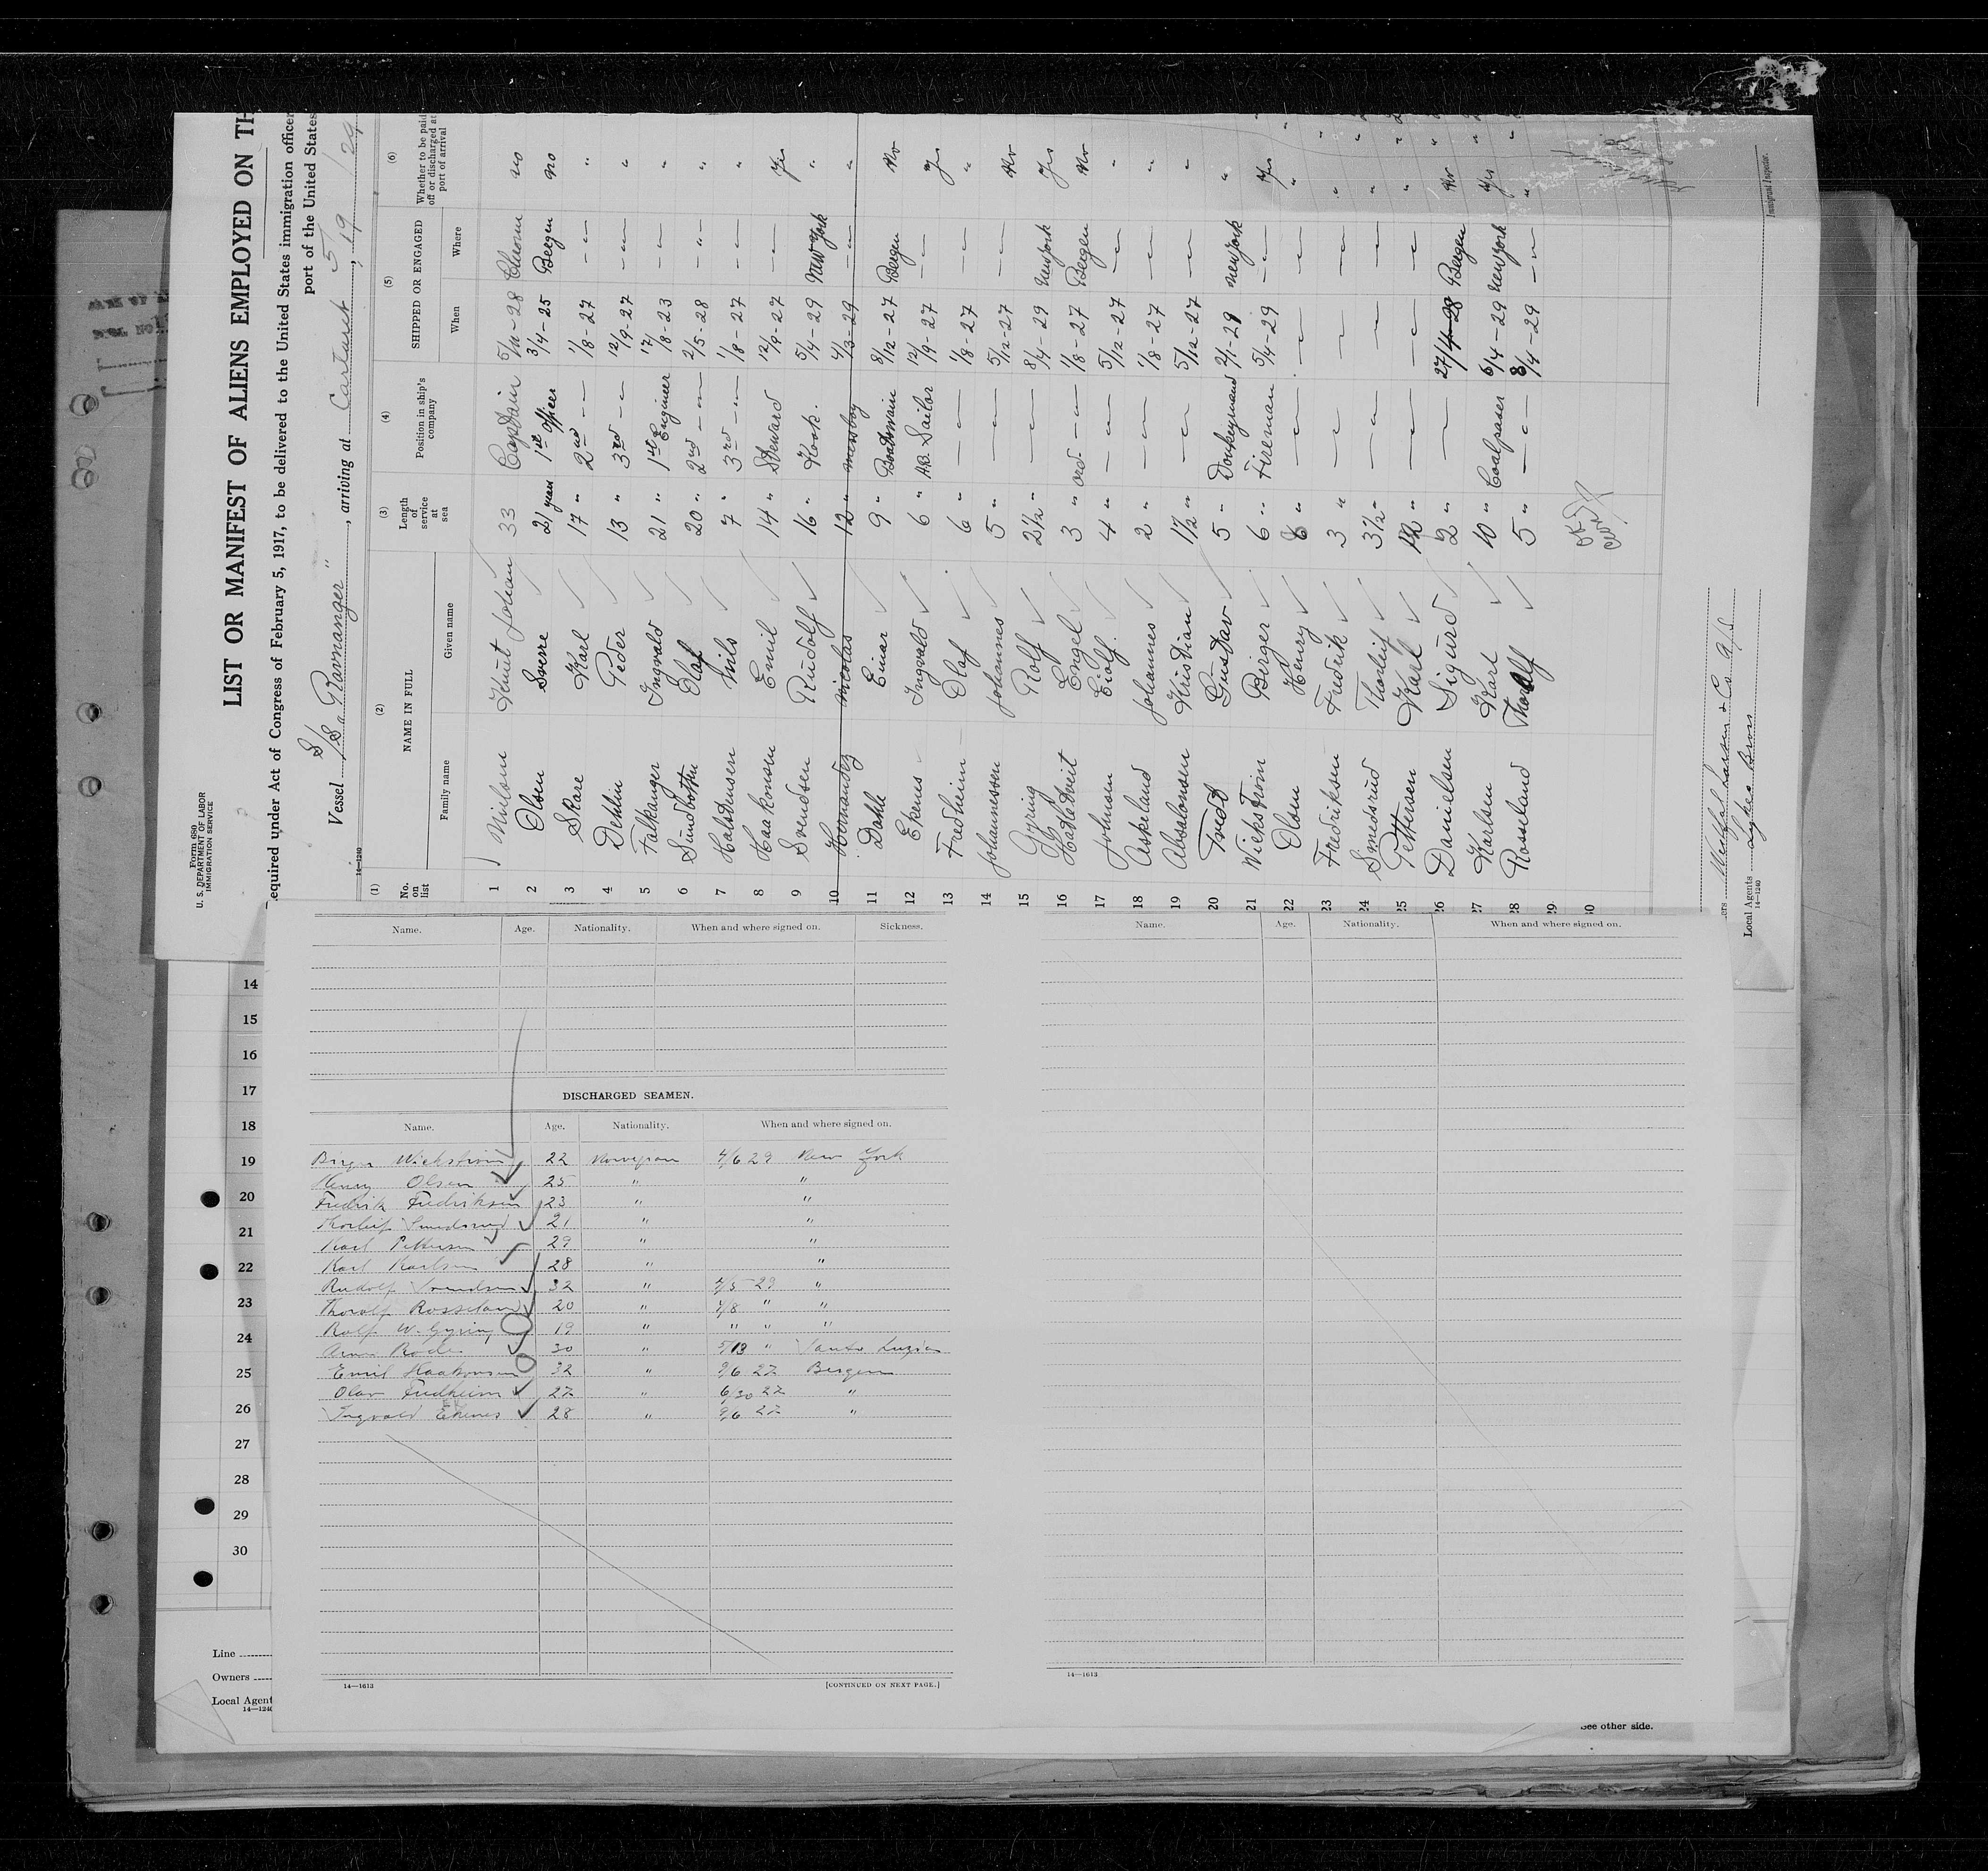 Form 680
U. S. DEPARTMENT OF LABOR
IMMIGRATION SERVICE
LIST OR MANIFEST OF ALIENS EMPLOYED ON TH
equired under Act of Congress of February 5, 1917, to be delivered to the United States immigration officer
port of the United States
Vessel S/S "Ravnanger", arriving at Carteret 5/, 19 /29
14—1240
(1) (2) (3) (4) (5) (6)
No. on list NAME IN FULL Length of service at sea Position in ship's company SHIPPED OR ENGAGED Whether to be paid off or discharged at port of arrival
Family name Given name When Where
1 Knut Johan 33 Captain 5/11-28 no
2 Olsen Sverre 21 years 1st Officer 3/4-25 Bergen no
3 Skare Karl 17 " 2nd — 1/8-27 — "
4 Dehlin Peder 13 " 3rd — 12/9-27 — "
5 Falkanger Ingvald 21 " 1st Engineer 17/8-23 — "
6 Sundbotten Olaf 20 " 2nd — 2/5-28 — " — "
7 Halstensen Nils 7 " 3rd — 1/8-27 — "
8 Haakonsen Emil 14 " Steward 12/9-27 — Yes
9 Svendsen Rudolf 16 " Kook. 5/4-29 New York "
10 Hernandez Nicolas 12 " Messboy 4/3-29 — "
11 Dahle Einar 9 " Boatswain 8/12-27 Bergen No
12 Ekenes Ingvald 6 " A.B. Sailor 12/9-27 — Yes
13 Fredheim Olaf 6 " — 1/8-27 — "
14 Johannessen Johannes 5 " — 5/12-27 — No
15 Gyring Rolf 2½ " — 8/4-29 New York Yes
16 Engel 3 " Ord — 1/8-27 Bergen No
17 Johnsen Eiolf. 4 " — 5/12-27 — "
18 Askeland Johannes 2 " — 1/8-27 — "
19 Absalonsen Kristian 1½ " — 5/12-27 — "
20 Tvedt Gustav 5 " Donkeymand 2/1-29 New York "
21 Wickstrøm Birger 6 " Fireman 5/4-29 — Yes
22 Olsen Henry 8 " — — — "
23 Fredriksen Fredrik 3 " — — — "
24 Smedsrud Thorleif 3½ " — — — "
25 Pettersen Karl " — — — "
26 Danielsen Sigurd 2 " — 27/4-28 Bergen No
27 Karlsen Karl 10 " Coalpaser 6/4-29 New York Yes
28 Rosseland Thoralf 5 " — 8/4-29 — "
29
30
Immigrant Inspector.
ers Westfal Larsen & Co. A/S
Local Agents Sykes Bros
14—1240
14
15
16
17
18
19
20
21
22
23
24
25
26
27
28
29
30
Line
Owners
Local Agent
14—1240
Name. Age. Nationality. When and where signed on. Sickness.
DISCHARGED SEAMEN.
Name. Age. Nationality. When and where signed on.
Birger Wickstrom 22 Norwegian 4/6 29 New York
Henry Olsen 25 " "
Fredrik Fredriksen 23 " "
Thorleif Smedsrud 21 " "
Karl Pettersen 29 " "
Karl Karlsen 28 " "
Rudolf Svendsen 32 " 4/5 29 "
Thoralf Rosseland 20 " 4/8 " "
Rolf W. Gyring 19 " " " "
30 " 5/13 "
Emil Haakonsen 32 " 9/6 27 Bergen
Olav Fredheim 27 " 6/30 27 "
Ingvald Ekenes 28 " 9/6 27 "
14—1613
[CONTINUED ON NEXT PAGE.]
Name. Age. Nationality. When and where signed on.
14—1613
See other side.